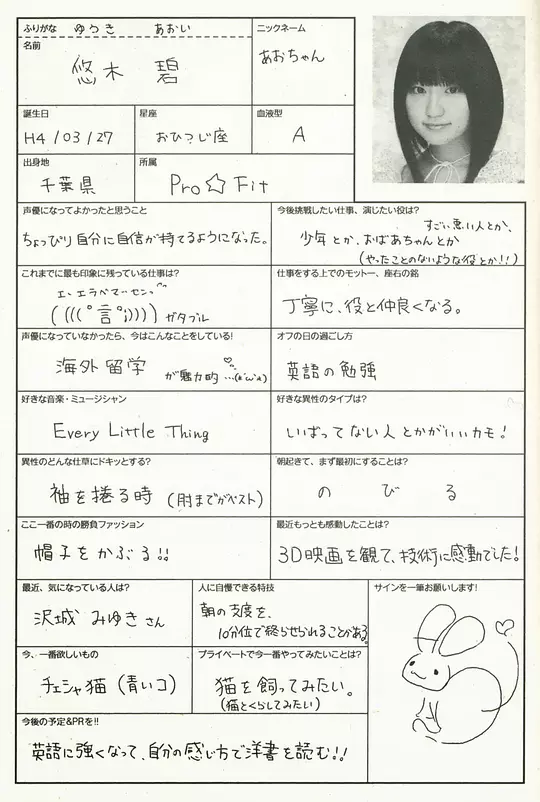 ふりがな ゆうき あおい
名前
悠木 碧
ニックネーム
あおちゃん
誕生日
H4/03/27
星座
おひつじ座
血液型
A
出身地
千葉県
所属
Pro☆Fit
声優になってよかったと思うこと
ちょっぴり自分に自信が持てるようになった。
今後挑戦したい仕事、演じたい役は?
すごい悪い人とか、
少年とか、おばあちゃんとか
(やったことのないような役とか!!)
これまでに最も印象に残っている仕事は?
エ…エラベマセーン
(((( °言°;)))) ガタブル
仕事をする上でのモットー、座右の銘
丁寧に、役と仲良くなる。
声優になっていなかったら、今はこんなことをしている!
海外留学 が魅力的…(*´ω`*)
オフの日の過ごし方
英語の勉強
好きな音楽・ミュージシャン
Every Little Thing
好きな異性のタイプは?
いばってない人とかがいいカモ!
異性のどんな仕草にドキッとする?
袖を捲る時 (肘までがベスト)
朝起きて、まず最初にすることは?
のびる
ここ一番の時の勝負ファッション
帽子をかぶる!!
最近もっとも感動したことは?
3D映画を観て、技術に感動でした!
最近、気になっている人は?
沢城 みゆきさん
人に自慢できる特技
朝の支度を、
10分位で終らせられることがある。
サインを一筆お願いします!
今、一番欲しいもの
チェシャ猫 (青いコ)
プライベートで今一番やってみたいことは?
猫を飼ってみたい。
(猫とくらしてみたい)
今後の予定&PRを!!
英語に強くなって、自分の感じ方で洋書を読む!!